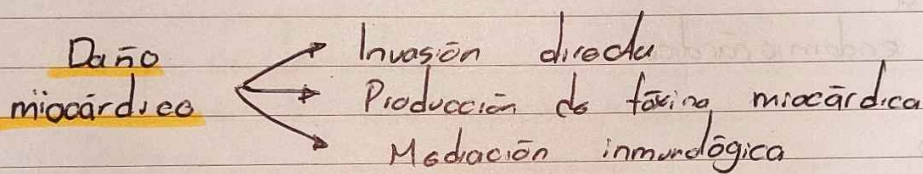 Daño
miocárdico
Invasión directa
Producción de toxina miocárdica
Mediación inmunológica